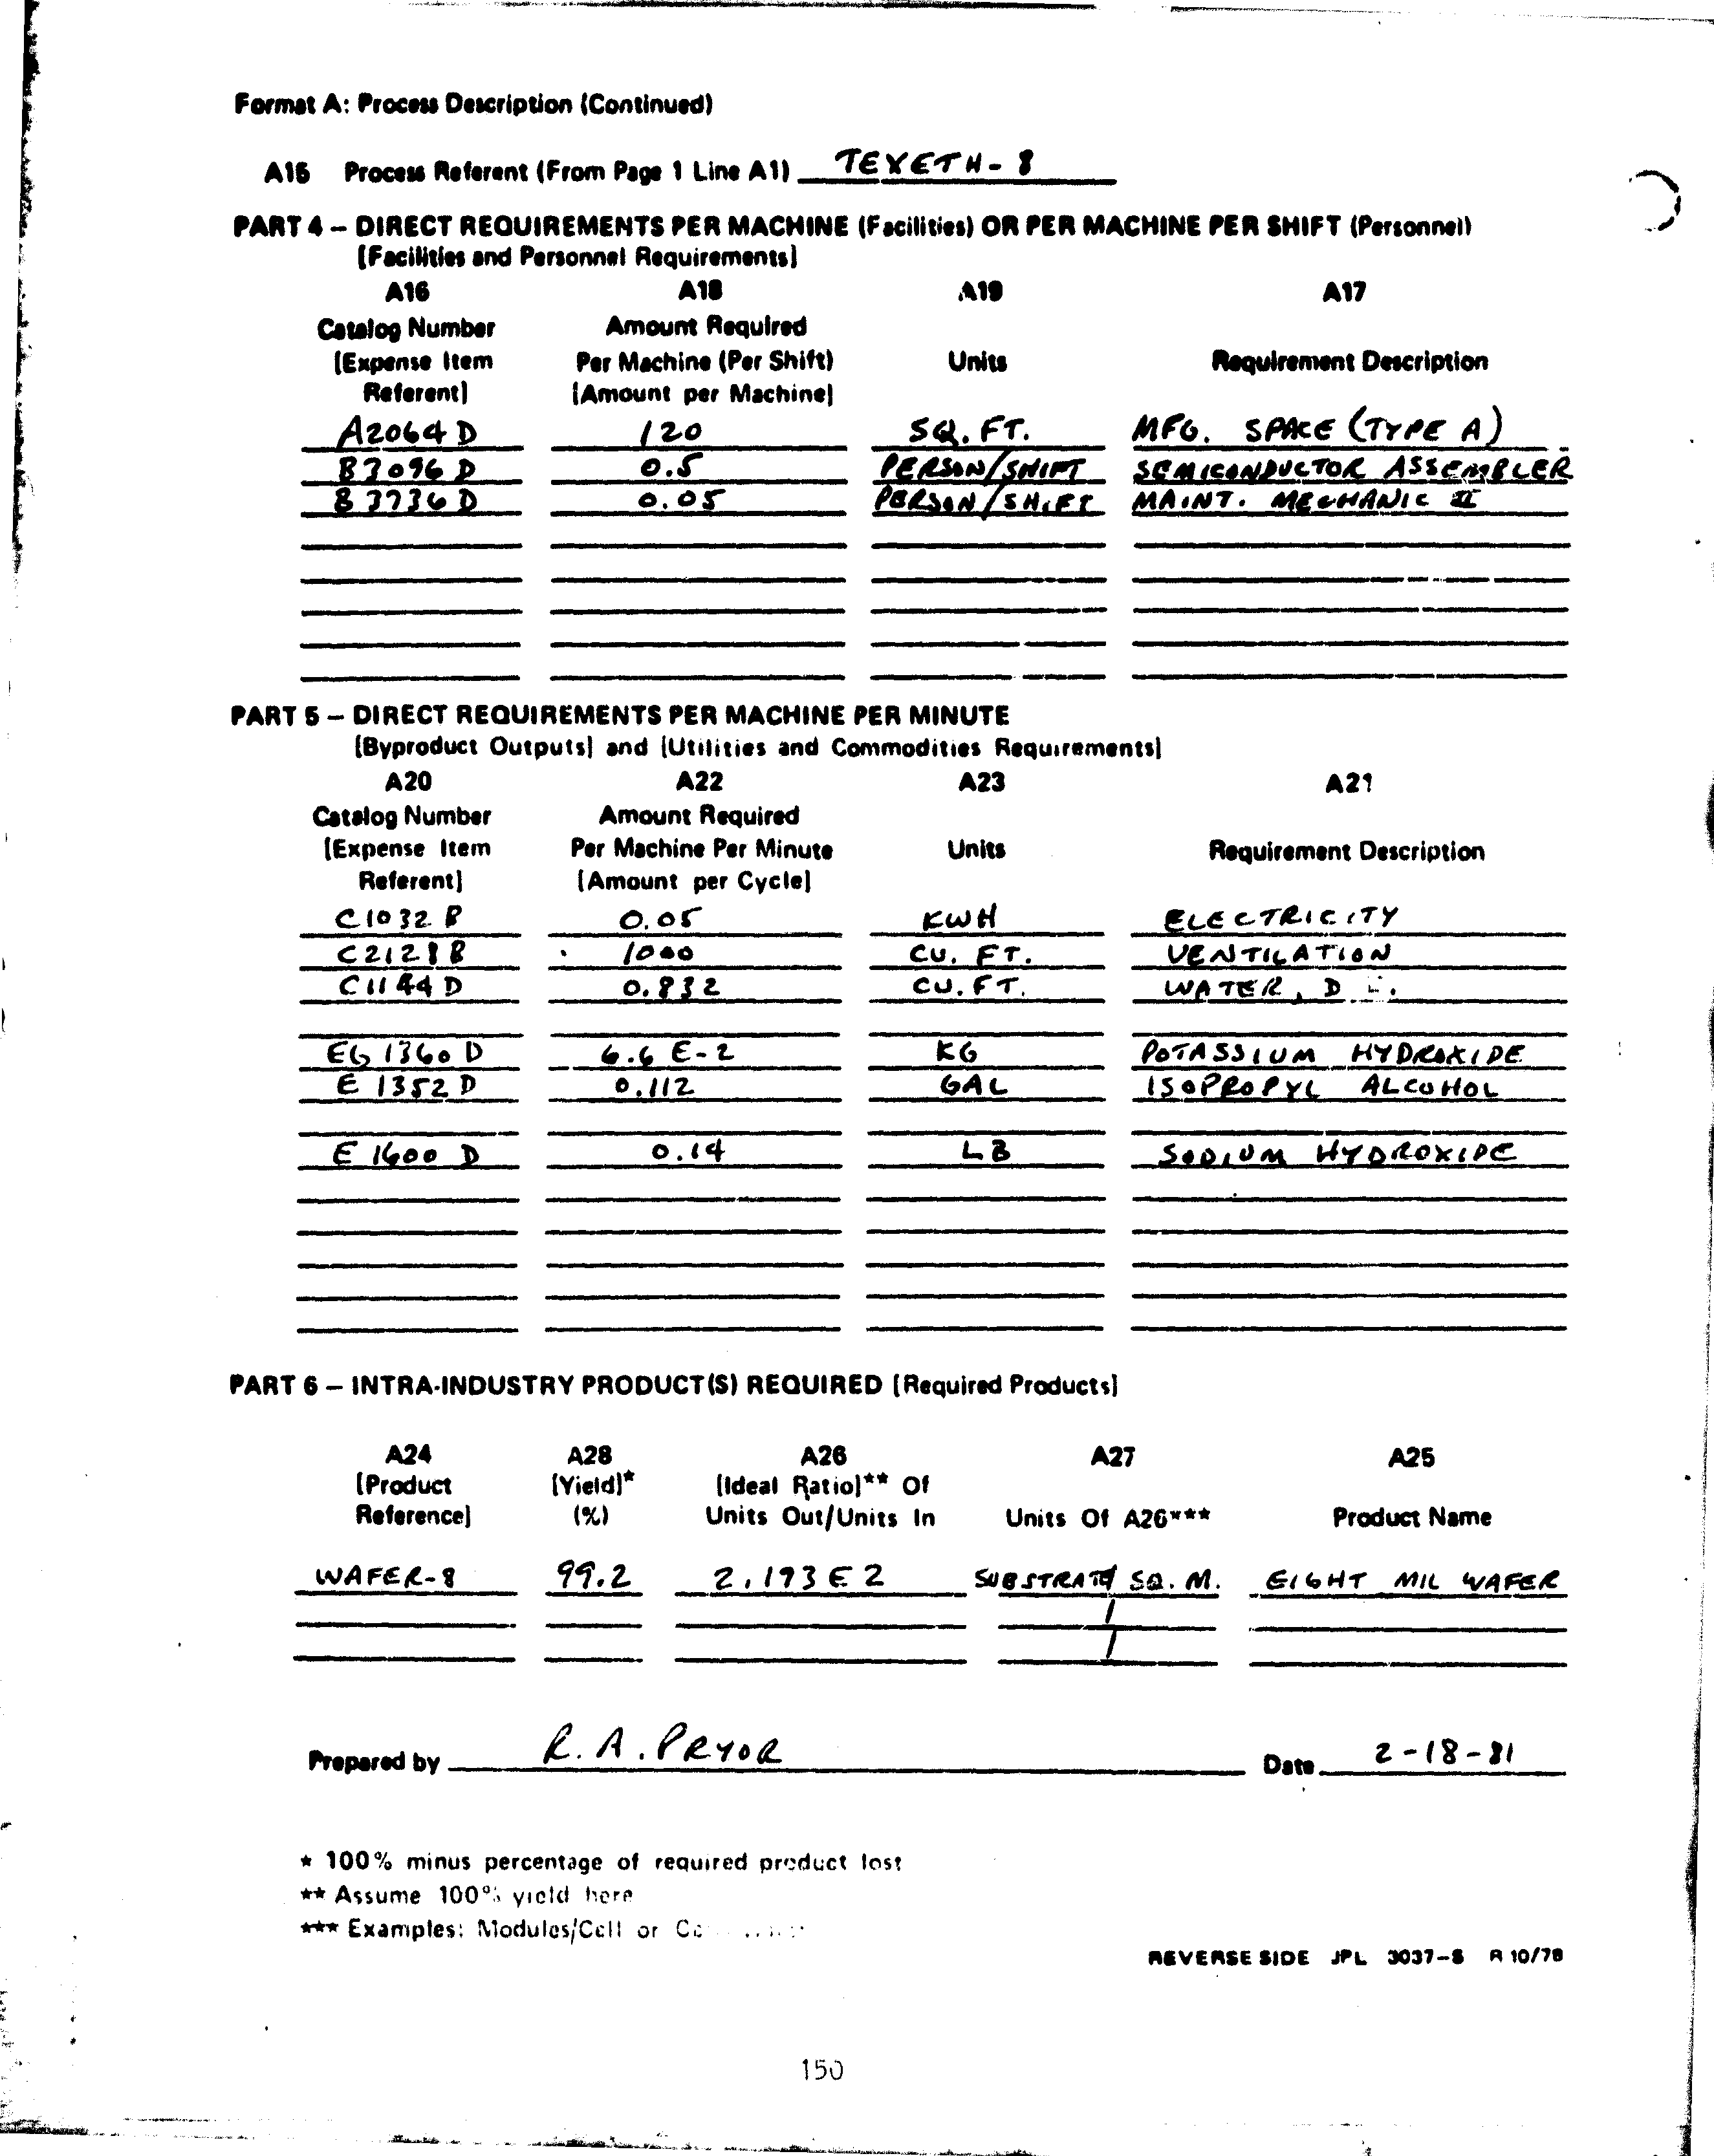 Format A: Process Description (Continued)
A15 Process Referent (From Page 1 Line A1) TEXETH-8
PART 4 – DIRECT REQUIREMENTS PER MACHINE (Facilities) OR PER MACHINE PER SHIFT (Personnel)
[Facilities and Personnel Requirements]
A16 A18 A19 A17
Catalog Number Amount Required
[Expense Item Per Machine (Per Shift) Units Requirement Description
Referent] [Amount per Machine]
A2064D 120 SQ. FT. MFG. SPACE (TYPE A)
B3096D 0.5 PERSON/SHIFT SEMICONDUCTOR ASSEMBLER
B3736D 0.05 PERSON/SHIFT MAINT. MECHANIC II
PART 5 – DIRECT REQUIREMENTS PER MACHINE PER MINUTE
[Byproduct Outputs] and [Utilities and Commodities Requirements]
A20 A22 A23 A21
Catalog Number Amount Required
[Expense Item Per Machine Per Minute Units Requirement Description
Referent] [Amount per Cycle]
C1032B 0.05 KWH ELECTRICITY
C2128B 1000 CU. FT. VENTILATION
C1144D 0.832 CU. FT. WATER, D
EG1360D 6.6 E-2 KG POTASSIUM HYDROXIDE
E1352D 0.112 GAL ISOPROPYL ALCOHOL
E1600D 0.14 LB SODIUM HYDROXIDE
PART 6 – INTRA-INDUSTRY PRODUCT(S) REQUIRED [Required Products]
A24 A28 A26 A27 A25
[Product [Yield]* [Ideal Ratio]** Of
Reference] (%) Units Out/Units In Units Of A26*** Product Name
WAFER-8 99.2 2.193E2 SUBSTRATE/SQ. M. EIGHT MIL WAFER
/
/
Prepared by R. A. PRYOR Date 2-18-81
* 100% minus percentage of required product lost
** Assume 100% yield here
*** Examples: Modules/Cell or
REVERSE SIDE JPL 3037-S R 10/78
150